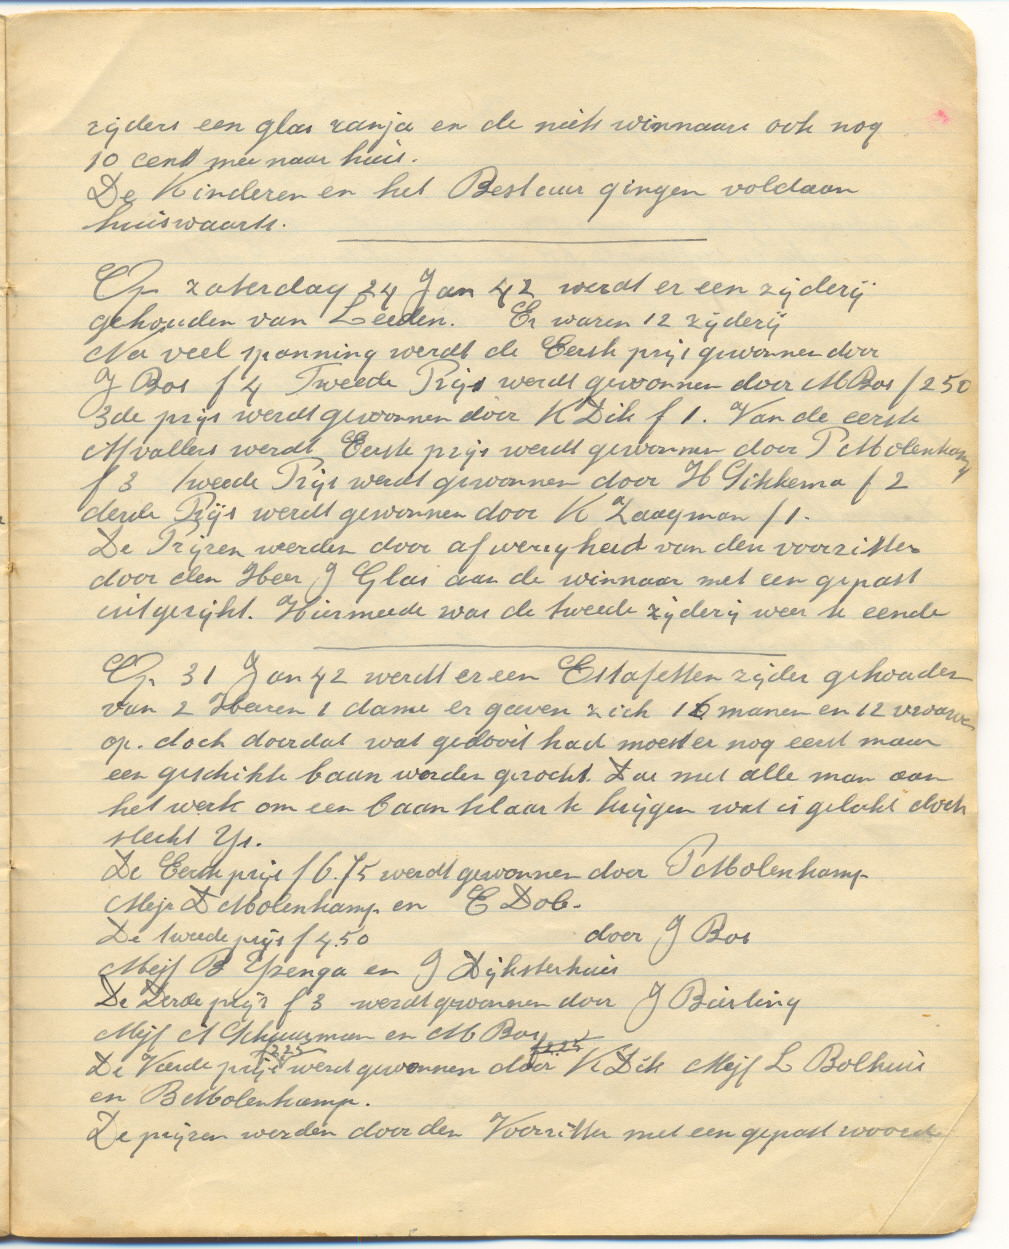 rijders een glas ranja en de niets winnaars ook nog
10 cent mee naar huis.
De Kinderen en het Bestuur gingen voldaan
huiswaarts.
Op zaterdag 24 Jan 42 werdt er een rijderij
gehouden van Leeden. Er waren 12 rijderij
Na veel spanning werdt de Eerste prijs gewonnen door
J Bos f 4 Tweede Prijs werdt gewonnen door M Bos f 2 50
3de prijs werdt gewonnen door K Dik f 1. Van de eerste
Afvallers werdt Eerste prijs werdt gewonnen door P Molenkamp
f 3 Tweede Prijs werdt gewonnen door H Sikkema f 2
derde Prijs werdt gewonnen door K Zaagman f 1.
De Prijzen werden door afwezigheid van den voorzitter
door den Heer J Glas aan de winnaar met een gepast
uitgerijkt. Hiermede was de tweede rijderij weer te eende
Op 31 Jan 42 werdt er een Estafetten rijder gehouden
van 2 Heeren 1 dame er gaven zich 16 manen en 12 vrouwe
op. doch doordat wat gedooit had moest er nog eerst maar
een geschikte baan worden gezocht. Dus met alle man aan
het werk om een baan klaar te krijgen wat is gelukt doch
slecht Ys.
De Eerste prijs f 6.75 werdt gewonnen door P Molenkamp
Mejr D Molenkamp en E Dob.
De tweede prijs f 4.50 door J Bos
Mejf B Ypenga en J Dijksterhuis
De Derde prijs f 3 werdt gewonnen door J Bierling
Mejf A Schuurman en M Bos
De Vierde prijs f 2 25 werdt gewonnen door K Dik Mejf L Bolhuis
en B Molenkamp.
De prijzen werden door den Voorzitter met een gepast woord